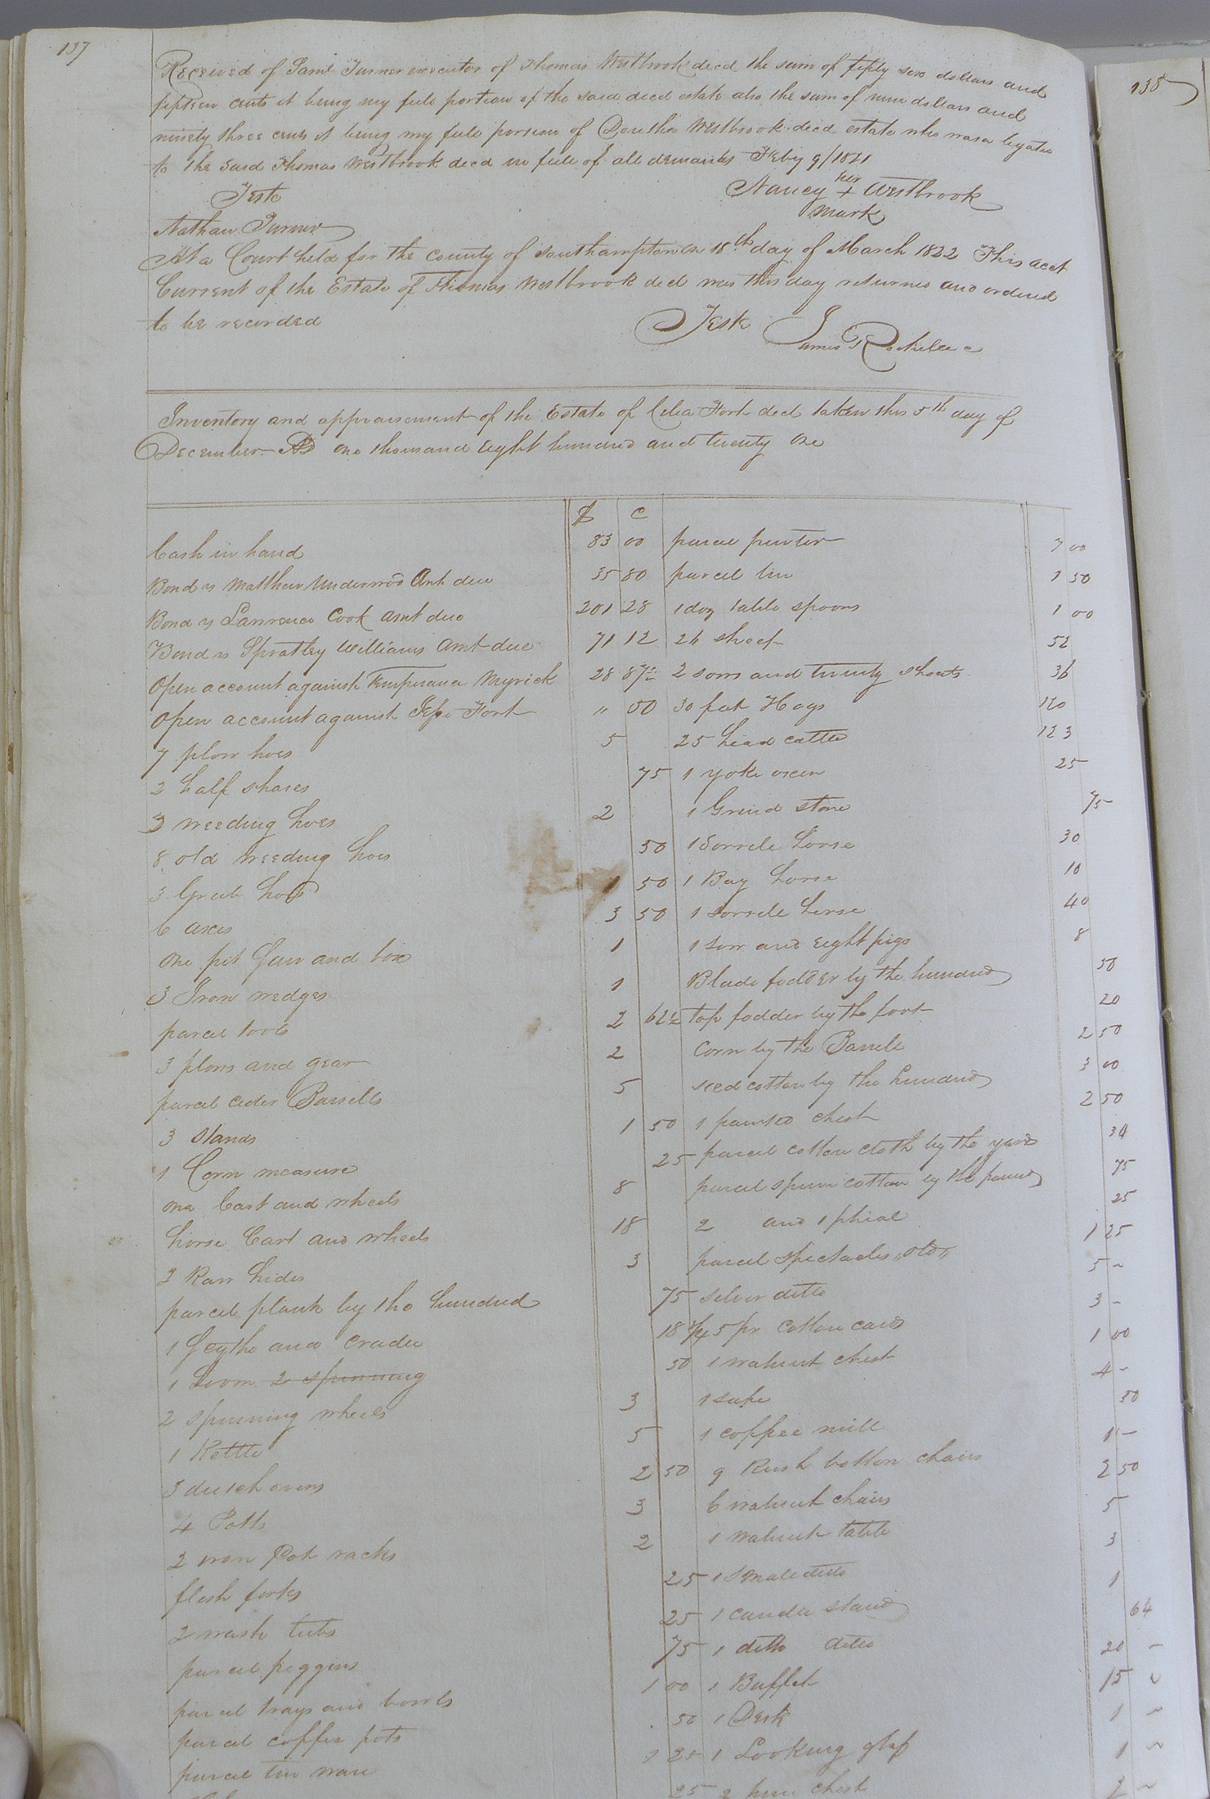 137
Received of Saml Turner executor of Thomas Westbrook decd the sum of fifty six dollars and
fifteen cents it being my full portion of the said decd estate also the sum of nine dollars and
ninety three cents it being my full portion of Westbrook decd estate who was a legatee
to the said Thomas Westbrook decd in full of all demands Feby 9/1821
Teste Nancy her + Westbrook
mark
Nathan Turner
At a Court held for the County of Southampton on 18th day of March 1822 This acct
Current of the Estate of Thomas Westbrook decd was this day returned and ordered
to be recorded
Teste James Rochelle c
Inventory and appraisement of the Estate of Celia Fort decd taken this 5th day of
December AD one thousand eight hundred and twenty one
$ c
Cash in hand 83 00
Bond vs Matthew Underwood Amt due 35 80
Bond vs Lawrence Cook amt due 201 28
Bond vs Spratley Williams amt due 71 12
Open account against Temperance Myrick 28 87½
Open account against Fort " 50
7 plow hoes 5
2 half shares 75
3 weeding hoes 2
8 old weeding hoes 50
3 Grub hoes 1 50
6 axes 3 50
one pit Saw and box 1
3 Iron wedges 1
parcel tools 2 62½
3 plows and gear 2
parcel cider Barrells 5
3 Stands 1 50
1 Corn measure 25
one Cart and wheels 8
horse Cart and wheels 18
3 Raw hides 3
parcel plank by the hundred 75
1 Scythe and Cradle 18¾
1 Loom 2 spinning 50
2 spinning wheels 3
1 Kettle 5
3 dutch ovens 2 50
4 Potts 3
2 iron Pot racks 2
flesh forks 25
2 wash tubs 25
parcel piggins 75
parcel trays and bowls 1 00
parcel coffee pots 50
parcel tin ware 1 25
25
parcel pewter 7 00
parcel tin 1 50
1 doz table spoons 1 00
26 sheep 52
2 sows and twenty shoats 36
30 fat Hogs 120
25 head cattle 123
1 yoke oxen 25
1 Grind stone 75
1 Sorrele horse 30
1 Bay horse 10
1 sorrele horse 40
1 sow and eight pigs 8
Blade fodder by the hundred 50
top fodder by the foot 20
Corn by the Barrele 2 50
seed cotton by the hundred 3 00
1 painted chest 2 50
parcel cotton cloth by the yard 34
parcel spun cotton by the pound 75
2 and 1 phial 25
parcel spectacles old 1 25
silver ditto 5 -
5 pr cotton cards 3 -
1 walnut chest 1 00
1 safe 4 -
1 coffee mill 50
9 Rush bottom chairs 1 -
6 walnut chairs 2 50
1 walnut table 5
1 Small ditto 3
1 candle stand 1
1 ditto ditto 64
1 Buffet 20 -
1 Desk 15 -
1 Looking glass 1 -
2 pine chest 1 -
2 -
138